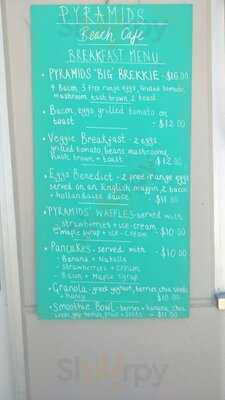 PYRAMIDS
Beach Cafe
BREAKFAST MENU
• PYRAMIDS "BIG" BREKKIE - $16.00
4 Bacon, 3 free range eggs, Grilled tomato,
mushroom hash brown 2 toast
• Bacon, eggs grilled tomato on
toast - $12.00
• Veggie Breakfast - 2 eggs
grilled tomato, beans mushrooms
hash brown + toast $12.00
• Eggs Benedict - 2 free range eggs
served on an English muffin, 2 bacon
+ hollandaise sauce $11.00
• PYRAMIDS' WAFFLES - served with
- strawberries + ice-cream
- maple syrup + ice-cream - $10.00
• Pancakes - served with - $10.00
- Banana + Nutella
- Strawberries + cream
- Bacon + Maple syrup
• Granola - greek yoghurt, berries, chia seeds
+ honey $10.00
• Smoothie Bowl - berries + banana, chia
seeds, goji berries, fruit + seeds - $11.00
Sluurpy